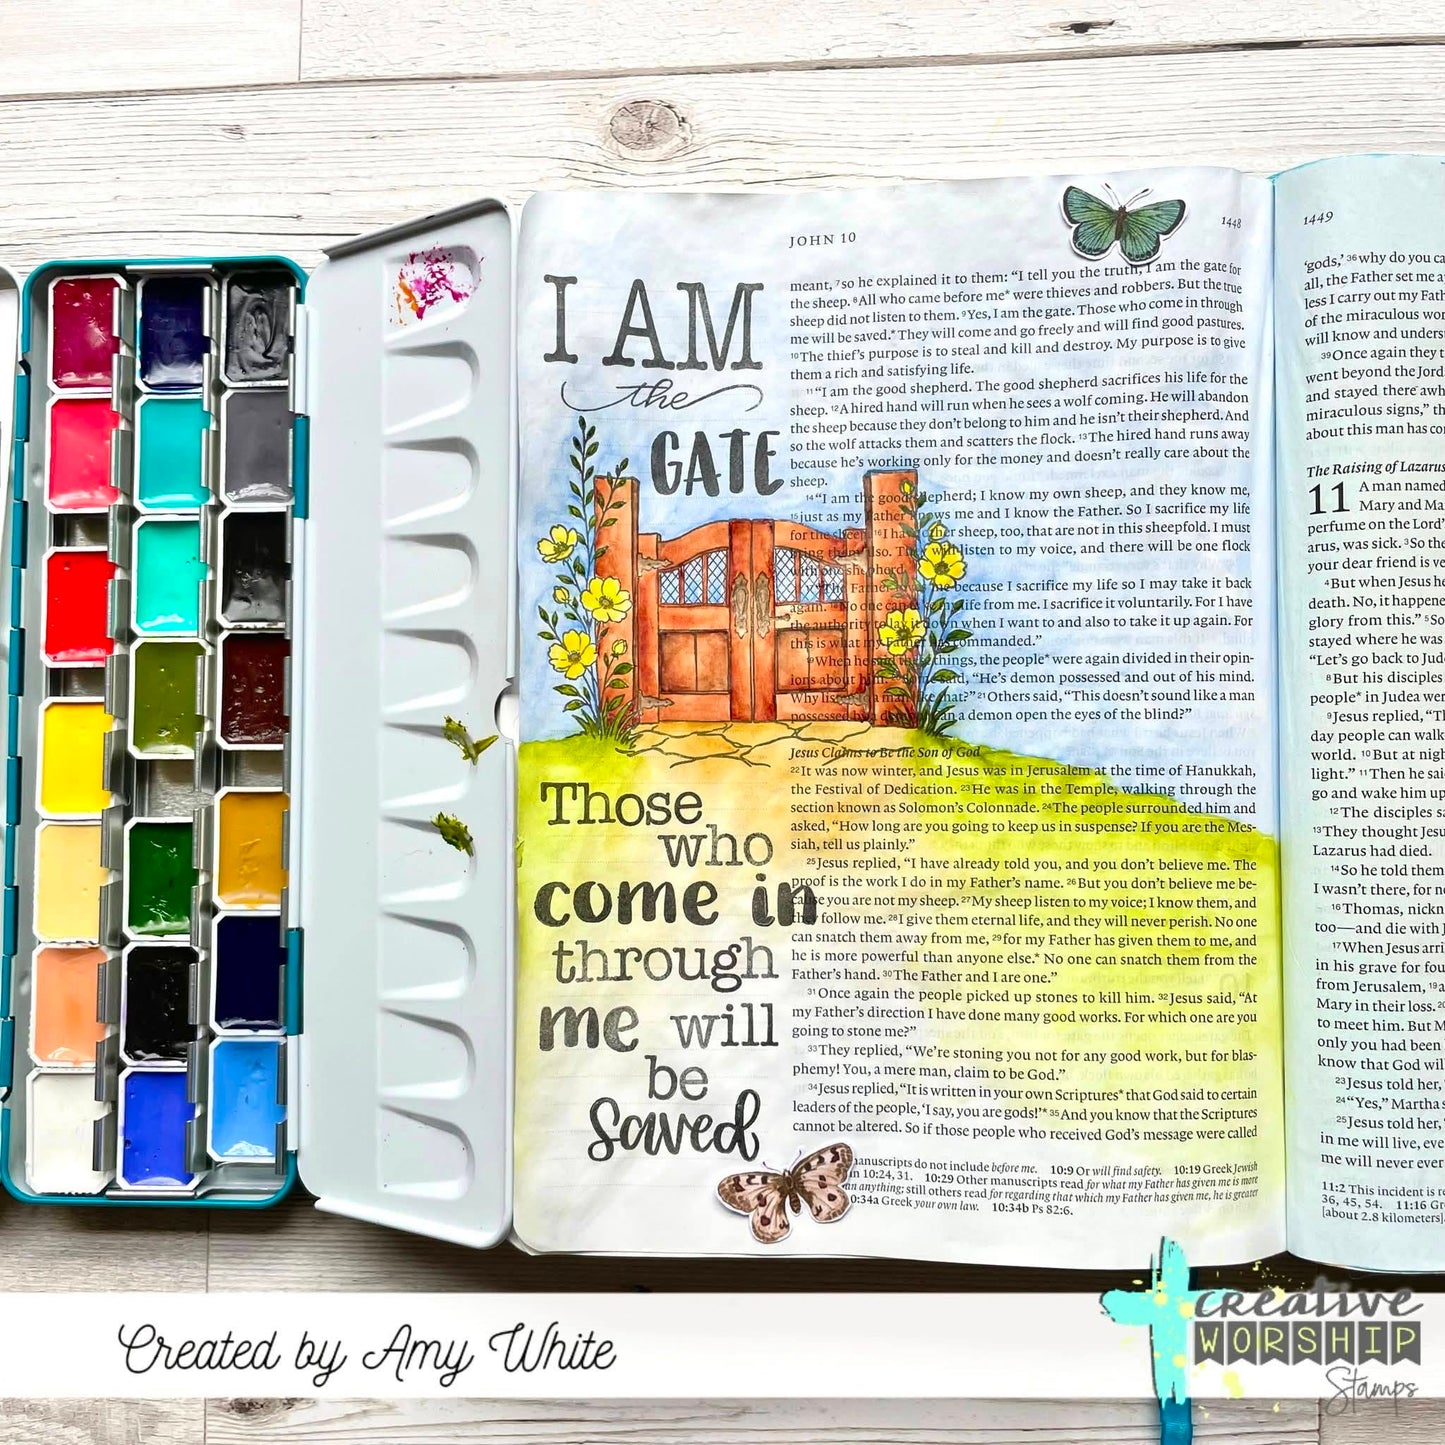 JOHN 10
1448
1449
I AM
the
GATE
Those
who
come in
through
me will
be
Saved
meant, ⁷so he explained it to them: “I tell you the truth, I am the gate for
the sheep. ⁸All who came before me* were thieves and robbers. But the true
sheep did not listen to them. ⁹Yes, I am the gate. Those who come in through
me will be saved.* They will come and go freely and will find good pastures.
¹⁰The thief’s purpose is to steal and kill and destroy. My purpose is to give
them a rich and satisfying life.
¹¹“I am the good shepherd. The good shepherd sacrifices his life for the
sheep. ¹²A hired hand will run when he sees a wolf coming. He will abandon
the sheep because they don’t belong to him and he isn’t their shepherd. And
so the wolf attacks them and scatters the flock. ¹³The hired hand runs away
because he’s working only for the money and doesn’t really care about the
sheep.
¹⁴“I am the good shepherd; I know my own sheep, and they know me,
¹⁵just as my Father knows me and I know the Father. So I sacrifice my life
for the sheep. ¹⁶I have other sheep, too, that are not in this sheepfold. I must
bring them also. They will listen to my voice, and there will be one flock
with one shepherd.
¹⁷“The Father loves me because I sacrifice my life so I may take it back
again. ¹⁸No one can take my life from me. I sacrifice it voluntarily. For I have
the authority to lay it down when I want to and also to take it up again. For
this is what my Father has commanded.”
¹⁹When he said these things, the people* were again divided in their opin-
ions about him. ²⁰Some said, “He’s demon possessed and out of his mind.
Why listen to a man like that?” ²¹Others said, “This doesn’t sound like a man
possessed by a demon! Can a demon open the eyes of the blind?”
Jesus Claims to Be the Son of God
²²It was now winter, and Jesus was in Jerusalem at the time of Hanukkah,
the Festival of Dedication. ²³He was in the Temple, walking through the
section known as Solomon’s Colonnade. ²⁴The people surrounded him and
asked, “How long are you going to keep us in suspense? If you are the Mes-
siah, tell us plainly.”
²⁵Jesus replied, “I have already told you, and you don’t believe me. The
proof is the work I do in my Father’s name. ²⁶But you don’t believe me be-
cause you are not my sheep. ²⁷My sheep listen to my voice; I know them, and
they follow me. ²⁸I give them eternal life, and they will never perish. No one
can snatch them away from me, ²⁹for my Father has given them to me, and
he is more powerful than anyone else.* No one can snatch them from the
Father’s hand. ³⁰The Father and I are one.”
³¹Once again the people picked up stones to kill him. ³²Jesus said, “At
my Father’s direction I have done many good works. For which one are you
going to stone me?”
³³They replied, “We’re stoning you not for any good work, but for blas-
phemy! You, a mere man, claim to be God.”
³⁴Jesus replied, “It is written in your own Scriptures* that God said to certain
leaders of the people, ‘I say, you are gods!’* ³⁵And you know that the Scriptures
cannot be altered. So if those people who received God’s message were called
manuscripts do not include before me. 10:9 Or will find safety. 10:19 Greek Jewish
in 10:24, 31. 10:29 Other manuscripts read for what my Father has given me is more
an anything; still others read for regarding that which my Father has given me, he is greater
10:34a Greek your own law. 10:34b Ps 82:6.
‘gods,’ ³⁶why do you ca
all, the Father set me a
less I carry out my Fath
of the miraculous wor
will know and unders
³⁹Once again they t
went beyond the Jord
and stayed there awh
miraculous signs,” th
about this man has co
The Raising of Lazarus
11 A man named
Mary and Ma
perfume on the Lord’
arus, was sick. ³So the
your dear friend is ve
⁴But when Jesus he
death. No, it happene
glory from this.” ⁵So
stayed where he was
“Let’s go back to Jude
⁸But his disciples
people* in Judea wer
⁹Jesus replied, “Th
day people can walk
world. ¹⁰But at nigh
light.” ¹¹Then he sai
go and wake him up
¹²The disciples sa
¹³They thought Jesu
Lazarus had died.
¹⁴So he told them
I wasn’t there, for no
¹⁶Thomas, nickn
too—and die with J
¹⁷When Jesus arri
in his grave for fou
from Jerusalem, ¹⁹a
Mary in their loss. ²⁰
to meet him. But M
only you had been
know that God wil
²³Jesus told her,
²⁴“Yes,” Martha s
²⁵Jesus told her,
in me will live, eve
me will never ever
11:2 This incident is r
36, 45, 54. 11:16 Gr
[about 2.8 kilometers]
Created by Amy White
CREATIVE
WORSHIP
Stamps